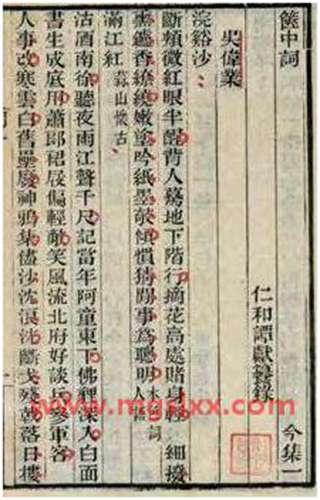 篋中詞　今集一
仁和譚獻纂錄
吳偉業
浣谿沙
斷頰微紅眼半醒背人驀地下階行摘花高處賭身輕　細撥
熏鑪香繚繞嫩塗吟紙墨欹傾慣猜閒事為聰明
滿江紅 蒜山懷古
沽酒南徐聽夜雨江聲千尺記當年阿童東下佛狸深入白面
書生成底用蕭郎裙屐偏輕敵笑風流北府好談兵參軍客
人事改寒雲白舊壘廢神鴉集儘沙沈浪洗斷戈殘戟落日樓